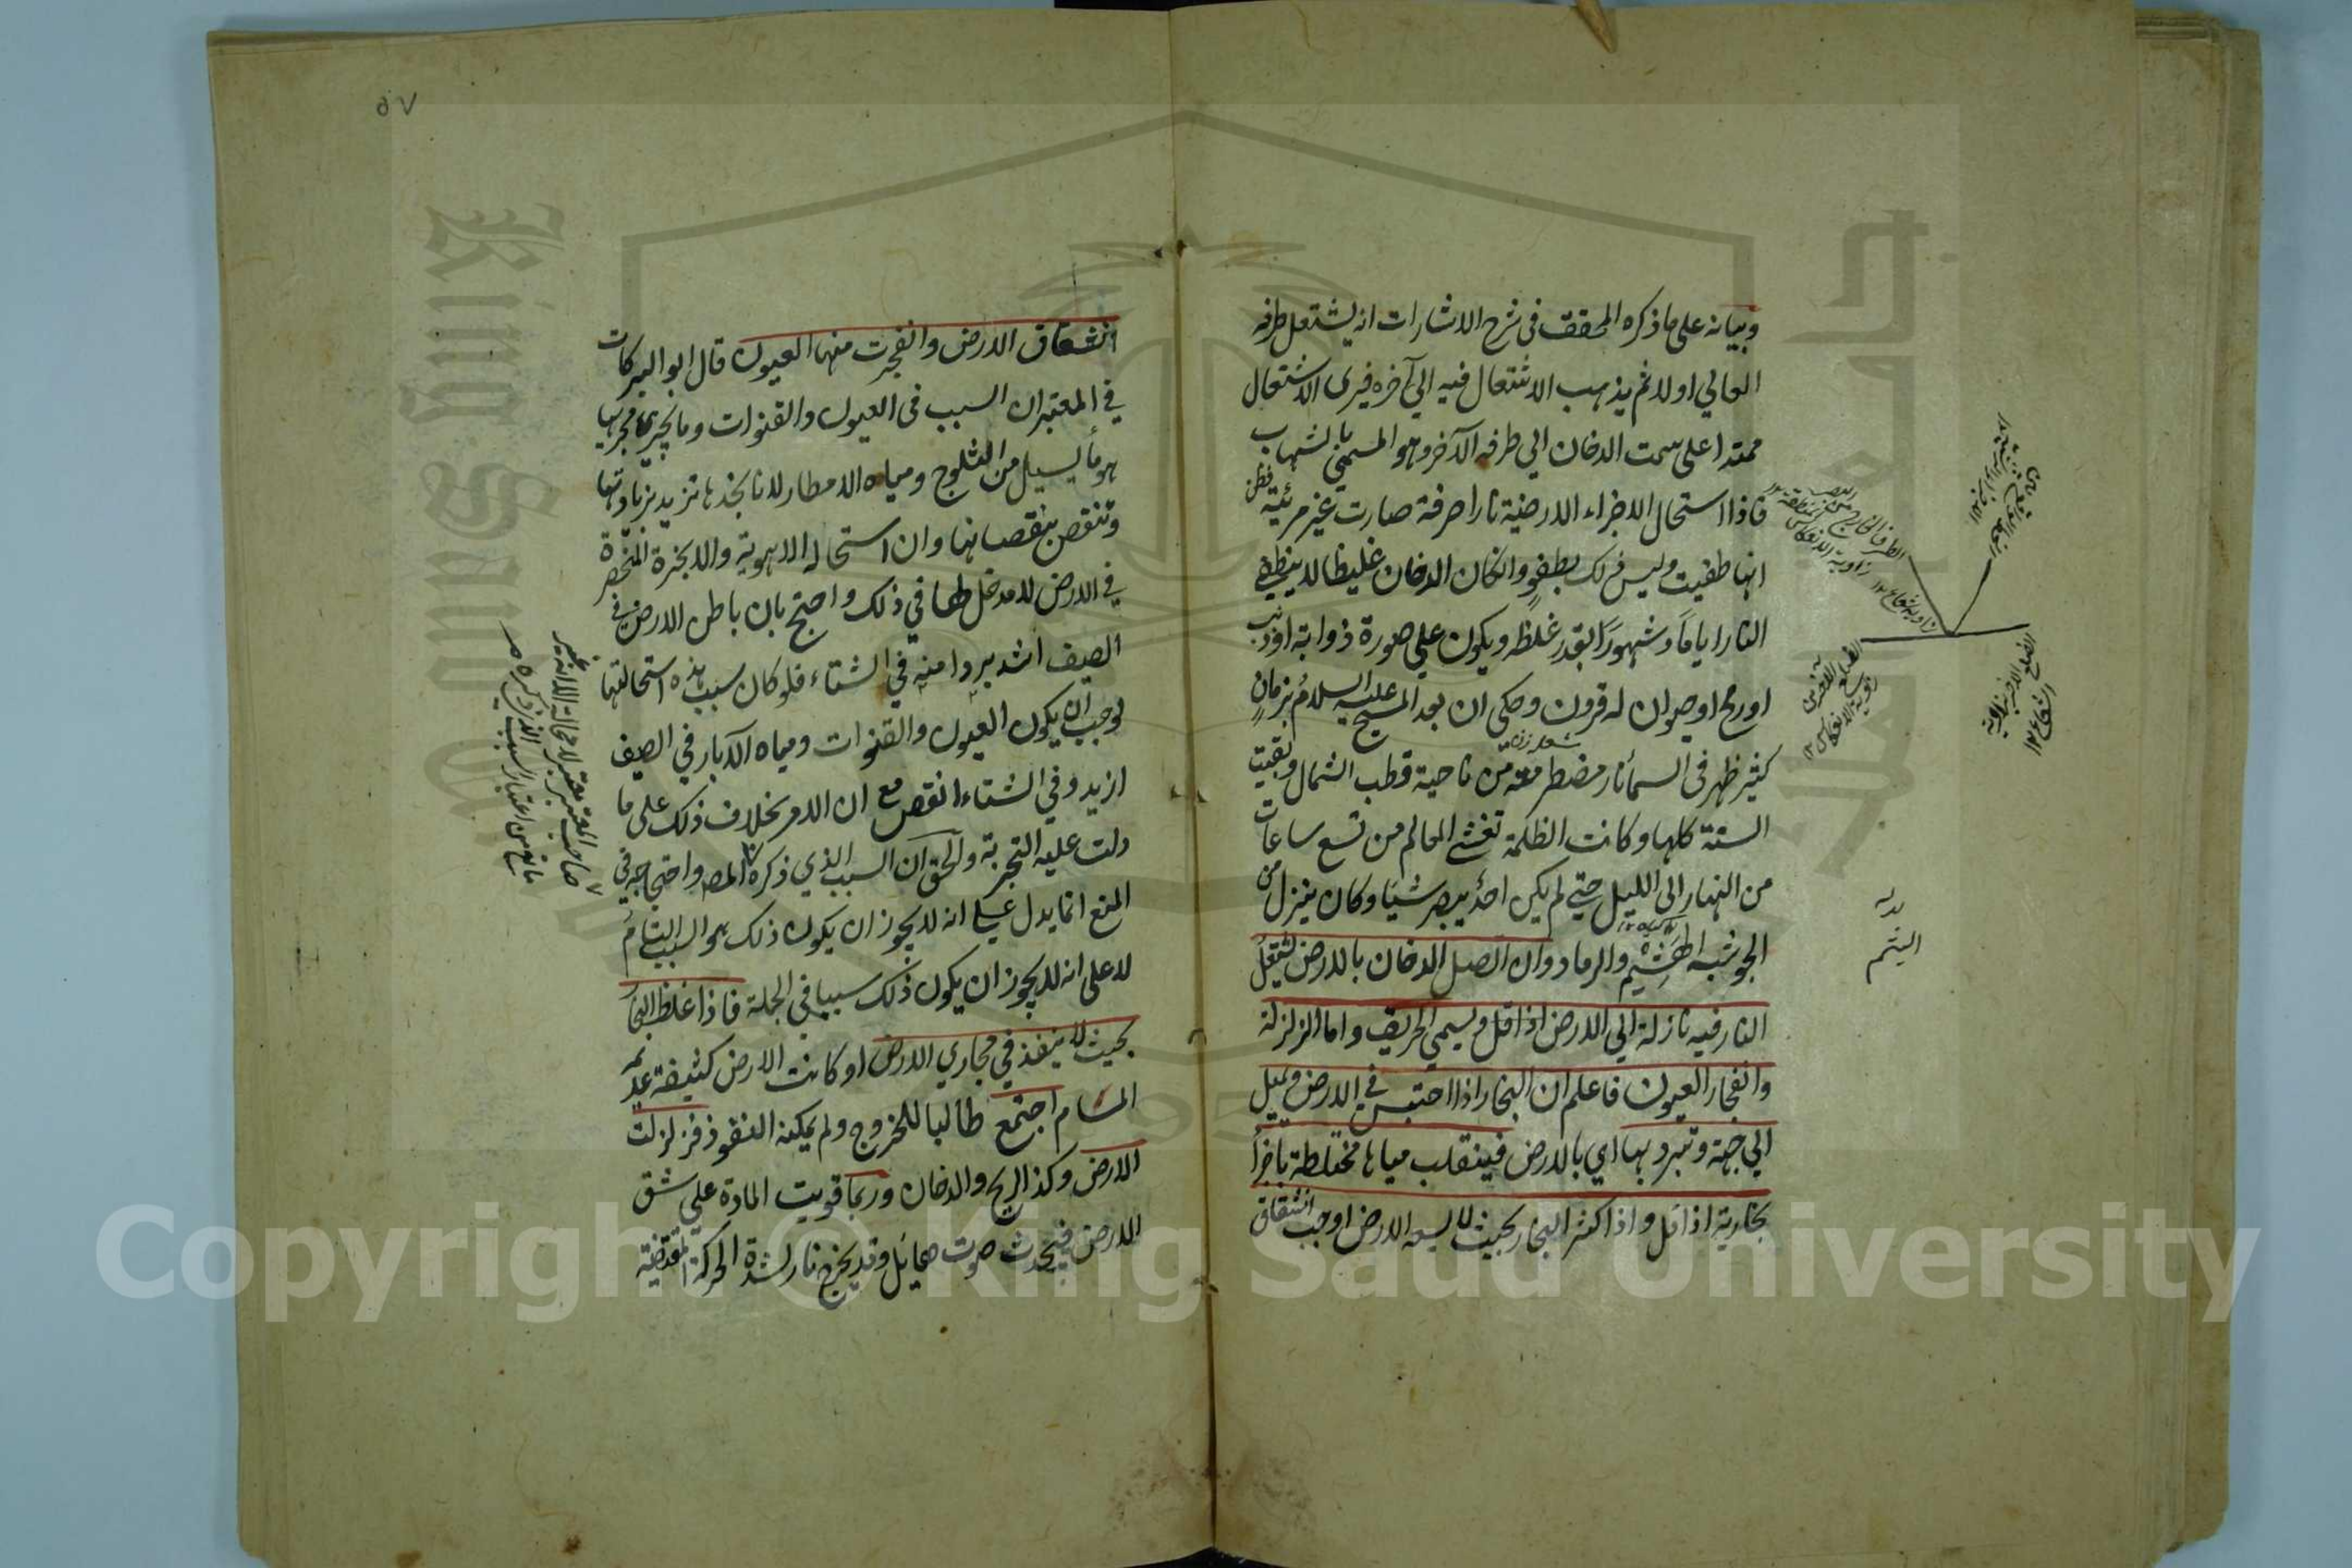 وبيانه على ما ذكره المحقق فى شرح الاشارات انه يشتعل طرفه
العالي اولا ثم يذهب الاشتعال فيه الي آخره فيرى الاشتعال
ممتدا على سمت الدخان الي طرفه الآخر وهو المسمى بالشهاب
فاذا استحال الاجزاء الارضية نارا صرفة صارت غير مرئية فظن
انها طفيت وليس ذلك بطفو وان كان الدخان غليظا لا ينطفي
النار اياما وشهورا بقدر غلظه ويكون علي صورة ذوابة او ذنب
او رمح او حيوان له قرون وحكى ان بعد المسيح عليه السلام بزمان
كثير ظهر فى السماء نار مضطرمة من ناحية قطب الشمال وبقيت
السنة كلها وكانت الظلمة تغشى العالم من تسع ساعات
من النهار الى الليل حتي لم يكن احد يبصر شيئا وكان ينزل من
الجو شبه الهشيم والرماد وان اتصل الدخان بالارض يشتعل
النار فيه نازلة الي الارض اذا قل ويسمى الحريق واما الزلزلة
وانفجار العيون فاعلم ان البخار اذا احتبس في الارض ويميل
الي جهة وتبرد بها اي بالارض فينقلب مياها مختلطة باجزاء
بخارية اذا قل واذا كثر البخار بحيث لا يسعه الارض اوجب انشقاق
اليتم
٥٧
انشقاق الارض وانفجرت منها العيون قال ابو البركات
في المعتبر ان السبب فى العيون والقنوات وما يجري مجريها
هو ما يسيل من الثلوج ومياه الامطار لانا نجدها تزيد بزيادتها
وتنقص بنقصانها وان استحالة الاهوية والابخرة المنحصرة
في الارض لا مدخل لها في ذلك واحتج بان باطن الارض في
الصيف اشد بردا منه في الشتاء فلو كان سبب هذه استحالتها
لوجب ان يكون العيون والقنوات ومياه الآبار في الصيف
ازيد وفي الشتاء انقص مع ان الامر بخلاف ذلك على ما
دلت عليه التجربة والحق ان السبب الذي ذكره المص واحتجاجه في
المنع انما يدل على انه لا يجوز ان يكون ذلك هو السبب التام
لا على انه لا يجوز ان يكون ذلك سببا في الجملة فاذا غلظ البخار
بحيث لا ينفذ في مجاري الارض او كانت الارض كثيفة عديمة
المسام اجتمع طالبا للخروج ولم يمكنه النفوذ فزلزلت
الارض وكذا الريح والدخان وربما قويت المادة على شق
الارض فيحدث صوت هائل وقد يخرج نار لشدة الحركة المقتضية
Copyright © King Saud University
King Saud